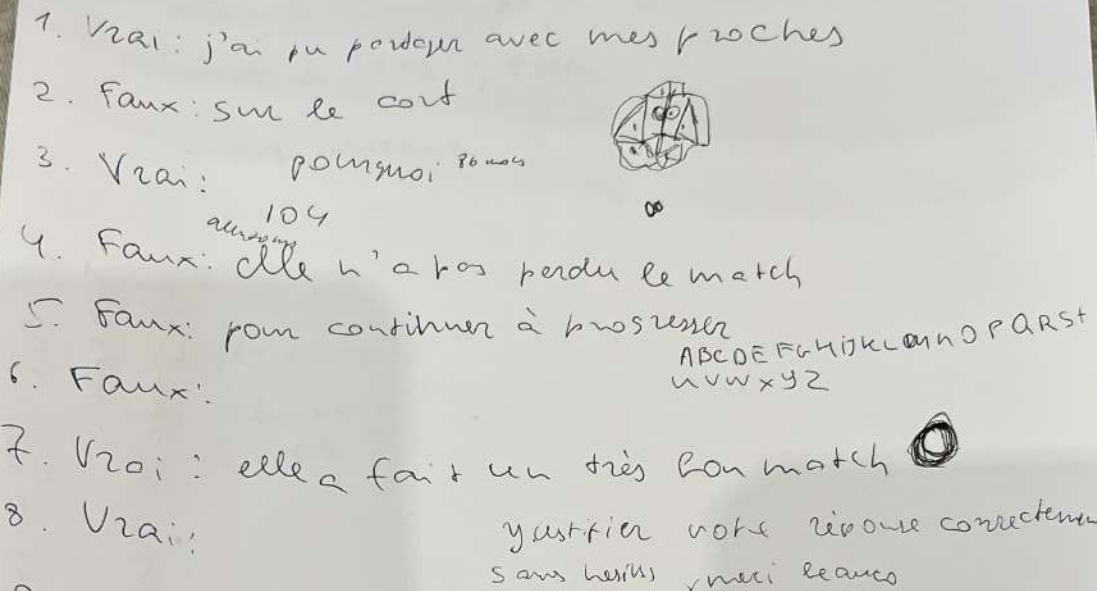 1. Vrai: j'ai pu partager avec mes proches
2. Faux: sur le cort
3. Vrai: pourquoi
104
4. Faux: elle n'a pas perdu le match
5. Faux: pour continuer à progresser
ABCDEFGHIJKLMNOPQRSt
uvwxyz
6. Faux:
7. Vrai: elle a fait un très bon match
8. Vrai:
justifier votre réponse correctemen
sans merci beauco